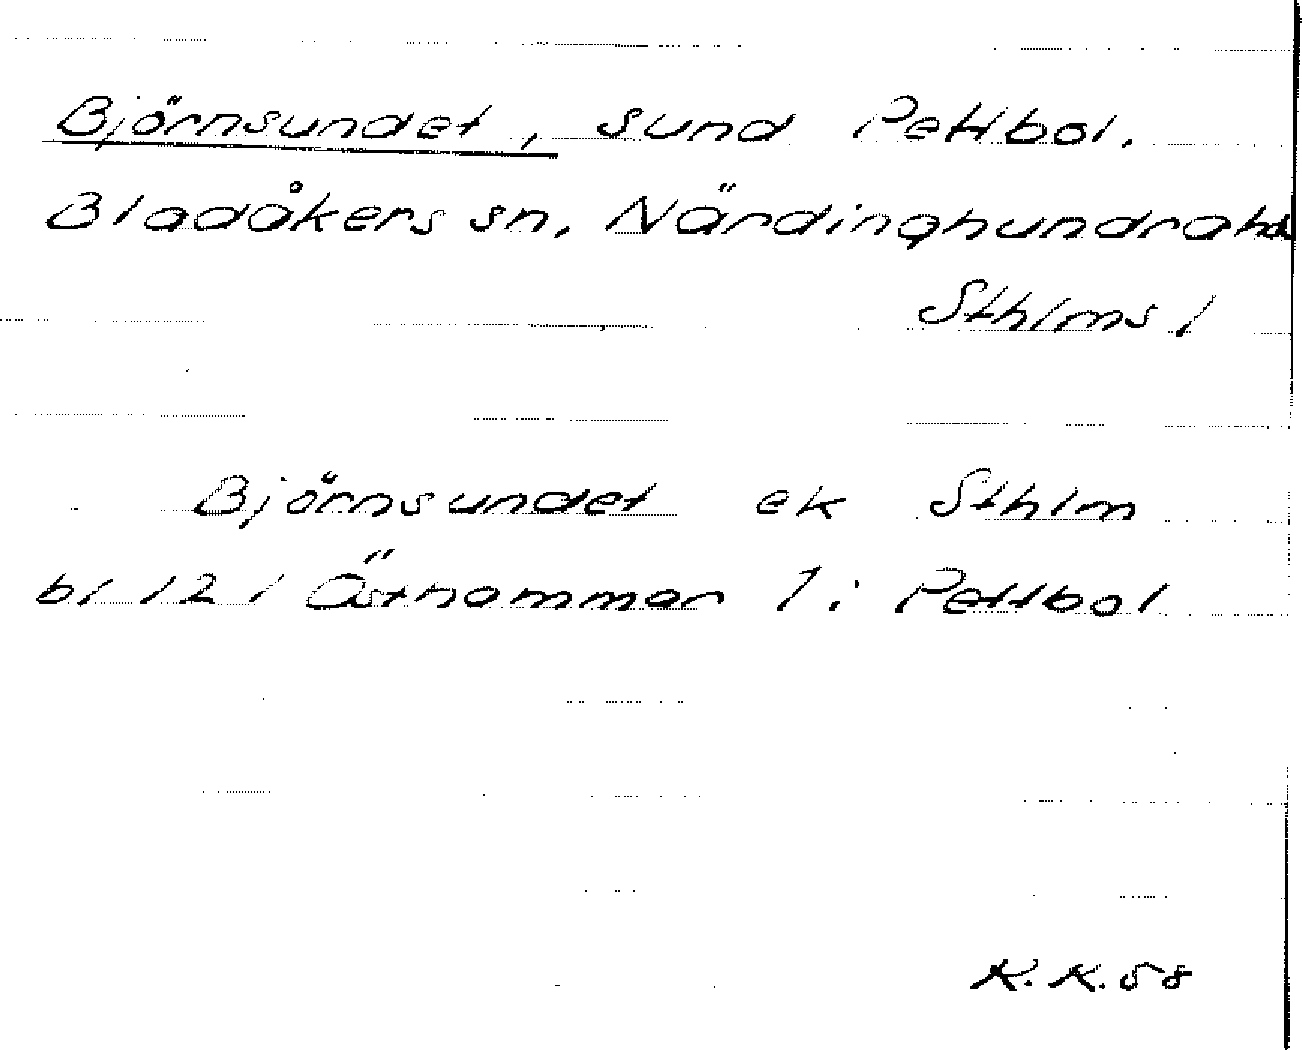 Björnsundet, sund Pettbol.
Bladåkers sn, Närdinghundra hd
Sthlms l
Björnsundet ek Sthlm
bl 121 Östhammar 1: Pettbol
K.K. 58